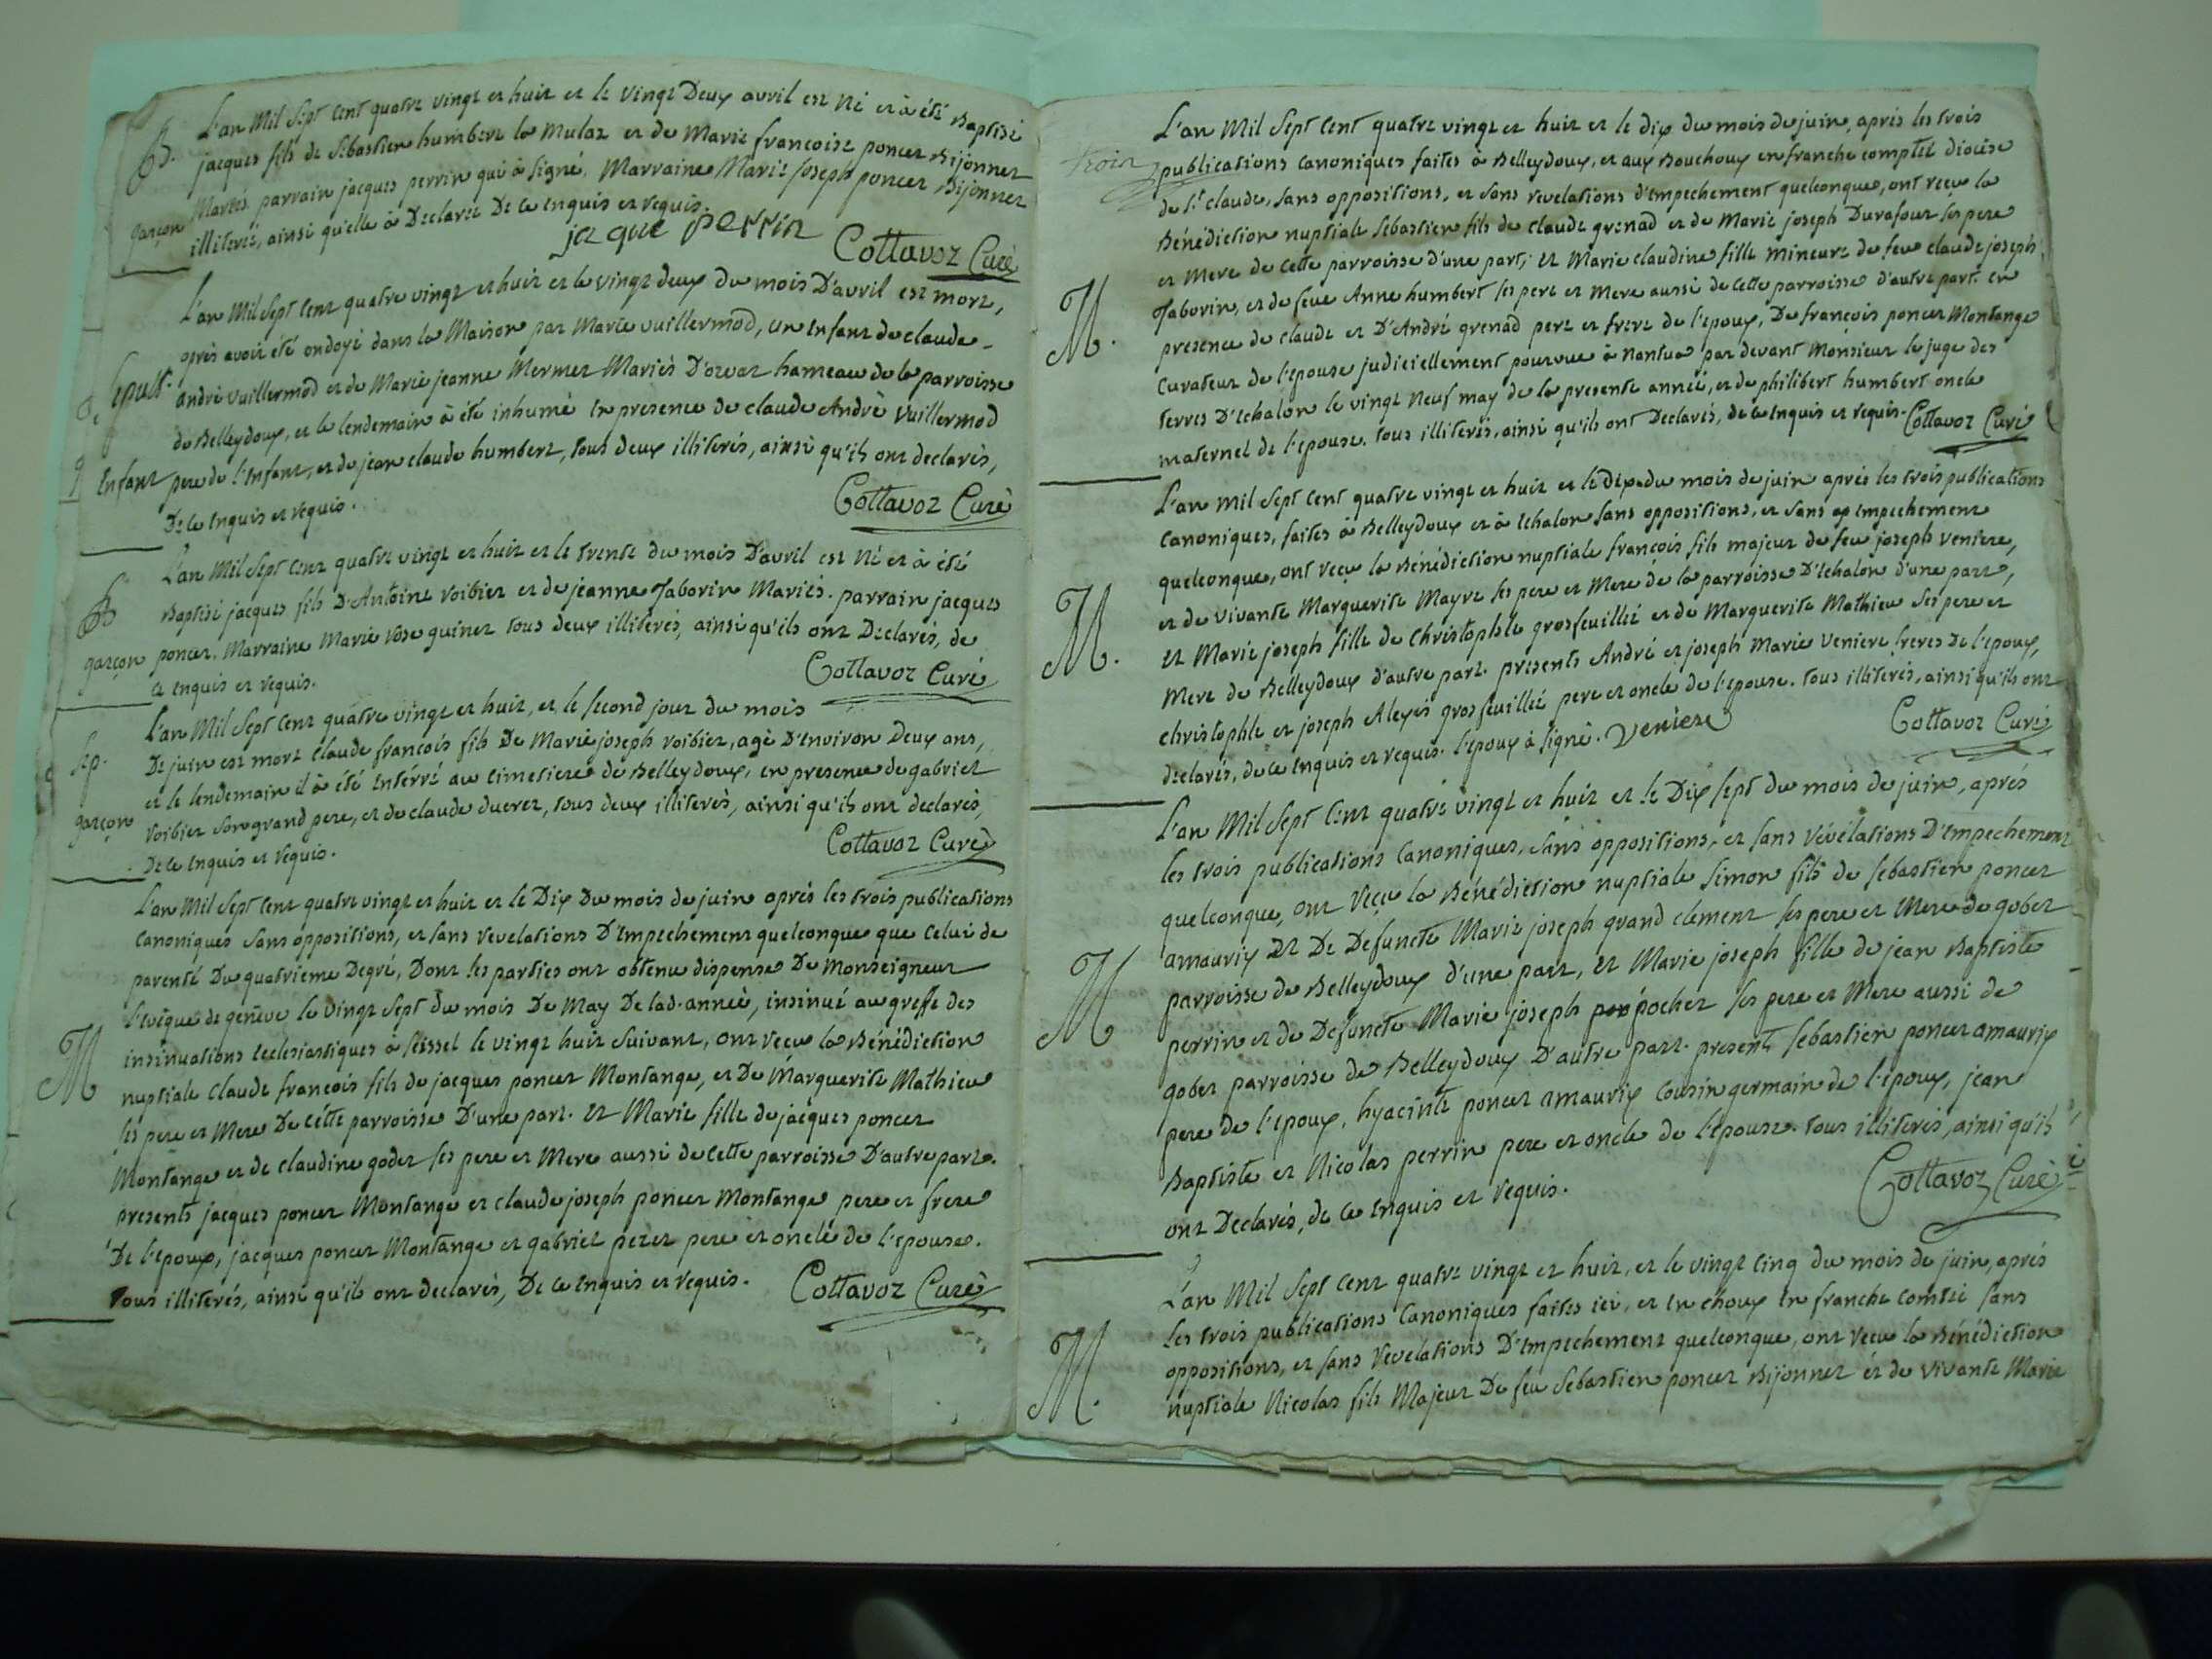 B.
garçon
L'an Mil Sept Cent quatre vingt et huit et le vingt Deux avril est Né et à été Baptisé
jacques fils de Sébastien humbert la Mulaz et de Marie francoise poncet Bijonnet
Mariés parrain jacques perrin qui à signé. Marraine Marie Joseph poncet Bijonnet
illiterée, ainsi qu'elle à Declarée De ce enquis et requis.
jaque perrin
Cottavoz Curé
Sepult.
Enfant
L'an Mil Sept Cent quatre vingt et huit et le vingt deux du mois D'avril est mort,
après avoir été ondoyé dans la Maison par Marie vuillermod, un enfant de claude
andré vuillermod et de Marie jeanne Mermet Mariés D'orvaz hameau de la parroisse
de Belleydoux, et le lendemain à été inhumé en presence de claude André vuillermod
pere de l'enfant, et de jean claude humbert, tous deux illiterés, ainsi qu'ils ont declarés,
De ce enquis et requis.
Cottavoz Curé
B
garçon
L'an Mil Sept Cent quatre vingt et huit et le trente du mois D'avril est Né et à été
Baptisé jacques fils D'Antoine Voibier et de jeanne Taborin Mariés. parrain jacques
poncet. Marraine Marie rose guinet tous deux illiterés, ainsi qu'ils ont Declarés, de
ce enquis et requis.
Cottavoz Curé
Sep.
garçon
L'an Mil Sept Cent quatre vingt et huit, et le second jour du mois
De juin est mort claude francois fils De Marie joseph voibier, agé D'environ Deux ans,
et le lendemain il à été enterré au cimetiere de Belleydoux, en presence de gabriel
voibier son grand pere, et de claude ducret, tous deux illiterés, ainsi qu'ils ont declarés,
De ce enquis et requis.
Cottavoz Curé
M
L'an Mil Sept Cent quatre vingt et huit et le Dix Du mois de juin après les trois publications
canoniques sans oppositions, et sans revelations D'empechement quelconque que celui de
parenté Du quatrieme Degré, Dont les parties ont obtenu dispense De Monseigneur
l'evêque de genêve le vingt sept du mois De May De lad. année, insinué au greffe des
insinuations ecclesiastiques à seissel le vingt huit suivant, ont reçu la Bénédiction
nuptiale claude francois fils de jacques poncet Montange, et De Marguerite Mathieu
ses pere et Mere De cette parroisse D'une part. et Marie fille de jacques poncet
Montange et de claudine godet ses pere et Mere aussi de cette parroisse D'autre part.
presents jacques poncet Montange et claude joseph poncet Montange pere et frere
De l'epoux, jacques poncet Montange et gabriel perer pere et oncle de l'epouse.
tous illiterés, ainsi qu'ils ont declarés, De ce enquis et requis.
Cottavoz Curé
trois
M.
L'an Mil Sept Cent quatre vingt et huit et le dix du mois de juin, après les trois
publications canoniques faites à Belleydoux, et aux Bouchoux en franche comptée diocèse
de St claude, sans oppositions, et sans revelations d'empechement quelconque, ont reçu la
Bénédiction nuptiale sebastien fils de claude grenad et de Marie joseph Durafour ses pere
et Mere de cette parroisse d'une part; et Marie claudine fille mineure de feu claude joseph
Taborin, et de feue Anne humbert ses pere et Mere aussi de cette parroisse d'autre part. en
presence de claude et D'André grenad pere et frere de l'epoux, De francois poncet Montange
curateur de l'epouse judiciellement pourvue à Nantua par devant Monsieur le juge des
terres D'echalon le vingt neuf may de la presente année, et de philibert humbert oncle
maternel de l'epouse. tous illiterés, ainsi qu'ils ont Declarés, de ce enquis et requis.
Cottavoz Curé
M.
L'an Mil Sept Cent quatre vingt et huit et le Dix du mois de juin après les trois publications
canoniques, faites à Belleydoux et à echalon sans oppositions, et sans empechement
quelconque, ont reçu la Bénédiction nuptiale françois fils majeur de feu joseph veniere,
et de vivante Marguerite Mayre ses pere et Mere de la parroisse D'echalon d'une part,
et Marie joseph fille de Christophle grosfeuillée et de Marguerite Mathieu ses pere et
Mere de Belleydoux d'autre part. presents André et joseph Marie veniere freres de l'epoux,
christophle et joseph Alexis grosfeuillée pere et oncle de l'epouse. tous illiterés, ainsi qu'ils ont
declarés, de ce enquis et requis. l'epoux à signé. Veniere
Cottavoz Curé
M
L'an Mil Sept Cent quatre vingt et huit et le Dix sept du mois de juin, après
les trois publications canoniques, sans oppositions, et sans révélations D'empechement
quelconque, ont reçu la Bénédiction nuptiale simon fils de sebastien poncet
amaurix et De Defuncte Marie joseph grand clement ses pere et Mere de gobet
parroisse de Belleydoux d'une part, et Marie joseph fille de jean Baptiste
perrin et de Defuncte Marie joseph pochet ses pere et Mere aussi de
gobet parroisse de Belleydoux D'autre part. presents sebastien poncet amaurix
pere de l'epoux, hyacinte poncet amaurix cousin germain de l'epoux, jean
Baptiste et Nicolas perrin pere et oncle de l'epouse. tous illiterés, ainsi qu'ils
ont Declarés, de ce enquis et requis.
Cottavoz Curé
M.
L'an Mil Sept Cent quatre vingt et huit, et le vingt cinq du mois de juin, après
les trois publications canoniques faites ici, et en choux en franche comtée sans
oppositions, et sans revelations D'empechement quelconque, ont reçu la Bénédiction
nuptiale Nicolas fils Majeur De feu Sebastien poncet Bijonnet et de vivante Marie